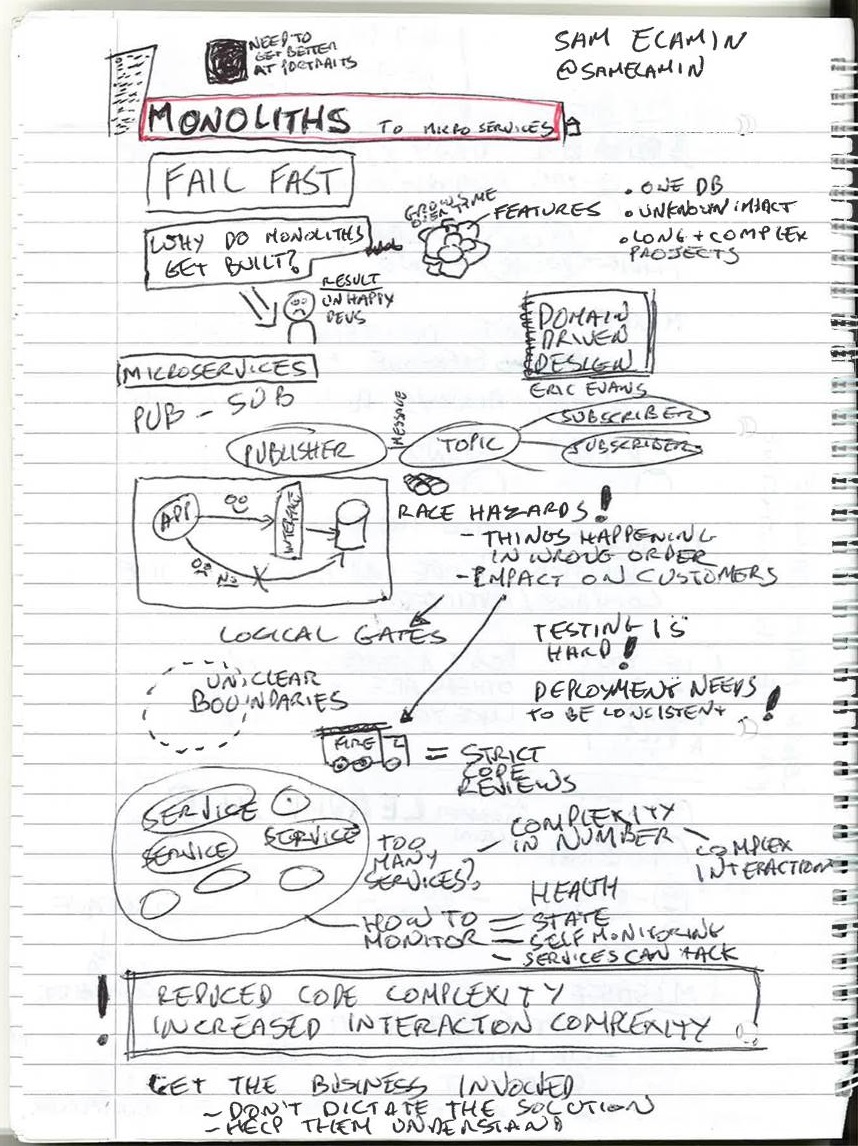 NEED TO
GET BETTER
AT PORTRAITS
SAM ELAMIN
@SAMELAMIN
MONOLITHS TO MICROSERVICES
FAIL FAST
WHY DO MONOLITHS
GET BUILT?
GROWS
OVER TIME
FEATURES
• ONE DB
• UNKNOWN IMPACT
• LONG + COMPLEX
PROJECTS
RESULT
UNHAPPY
DEVS
DOMAIN
DRIVEN
DESIGN
ERIC EVANS
MICROSERVICES
PUB - SUB
PUBLISHER
MESSAGE
TOPIC
SUBSCRIBER
SUBSCRIBER
APP
INTERFACE
NO
RACE HAZARDS!
- THINGS HAPPENING
IN WRONG ORDER
- IMPACT ON CUSTOMERS
LOGICAL GATES
TESTING IS
HARD!
UNCLEAR
BOUNDARIES
DEPLOYMENT NEEDS
TO BE CONSISTENT!
FIRE
= STRICT
CODE
REVIEWS
SERVICE
SERVICE
SERVICE
TOO
MANY
SERVICES?
- COMPLEXITY
IN NUMBER
- COMPLEX
INTERACTION
HOW TO
MONITOR
- HEALTH
- STATE
- SELF MONITORING
- SERVICES CAN
! REDUCED CODE COMPLEXITY
INCREASED INTERACTION COMPLEXITY
GET THE BUSINESS INVOLVED
- DON'T DICTATE THE SOLUTION
- HELP THEM UNDERSTAND